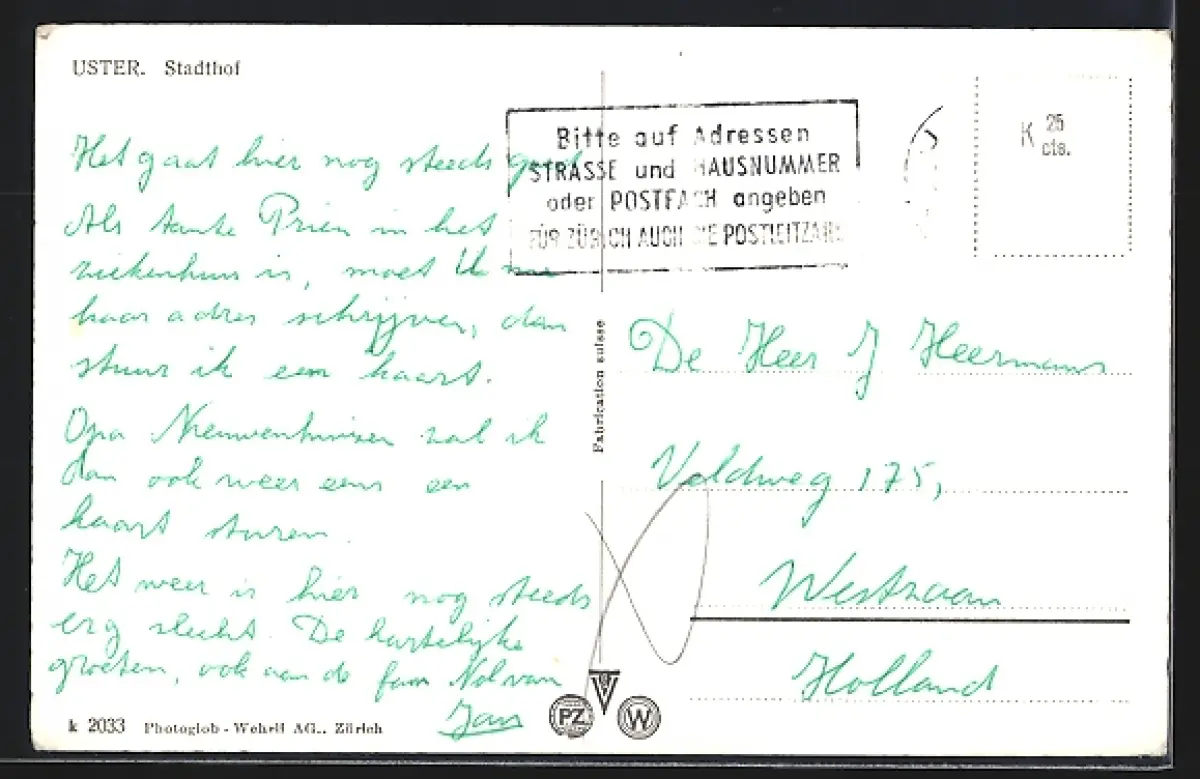 USTER. Stadthof
Het gaat hier nog steeds goed
Als tante Prien in het
ziekenhuis is, moet U me
haar adres schrijven, dan
stuur ik een kaart.
Opa Nieuwenhuizen zal ik
dan ook weer eens een
kaart sturen.
Het weer is hier nog steeds
erg slecht. De hartelijke
groeten, ook aan de fam
Jan
k 2033 Photoglob-Wehrli AG., Zürich
Bitte auf Adressen
STRASSE und HAUSNUMMER
oder POSTFACH angeben
FÜR ZÜRICH AUCH DIE POSTLEITZAHL
K 25
cts.
Fabrication suisse
De Heer J Heermans
Veldweg 175,
Westzaan
Holland
PZ
W